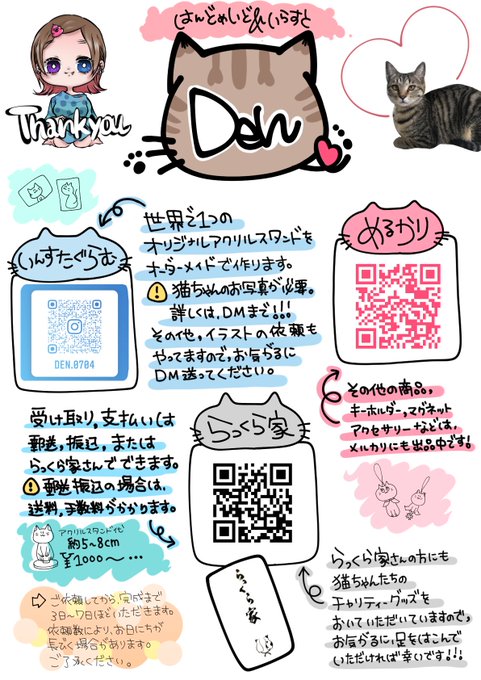 はんどめいど&いらすと
Den
Thank you
いんすたぐらむ
DEN.0704
世界で1つの
オリジナルアクリルスタンドを
オーダーメイドで作ります。
猫ちゃんのお写真が必要。
詳しくは、DMまで!!!
その他、イラストの依頼も
やってますので、お気がるに
DM送ってください。
めるかり
その他の商品、
キーホルダー、マグネット
アクセサリーなどは、
メルカリにも出品中です!
受け取り、支払いは
郵送、振込、または
らっくら家さんでできます。
郵送振込の場合は、
送料、手数料がかかります。
アクリルスタンド代
約5~8cm
¥1000~…
⇨ご依頼してから、完成まで
3日~7日ほどいただきます。
依頼数により、お日にちが
長びく場合があります。
ご了承ください。
らっくら家
らっくら家
らっくら家さんの方にも
猫ちゃんたちの
チャリティーグッズを
おいていただいていますので、
お気がるに、足をはこんで
いただければ幸いです!!!